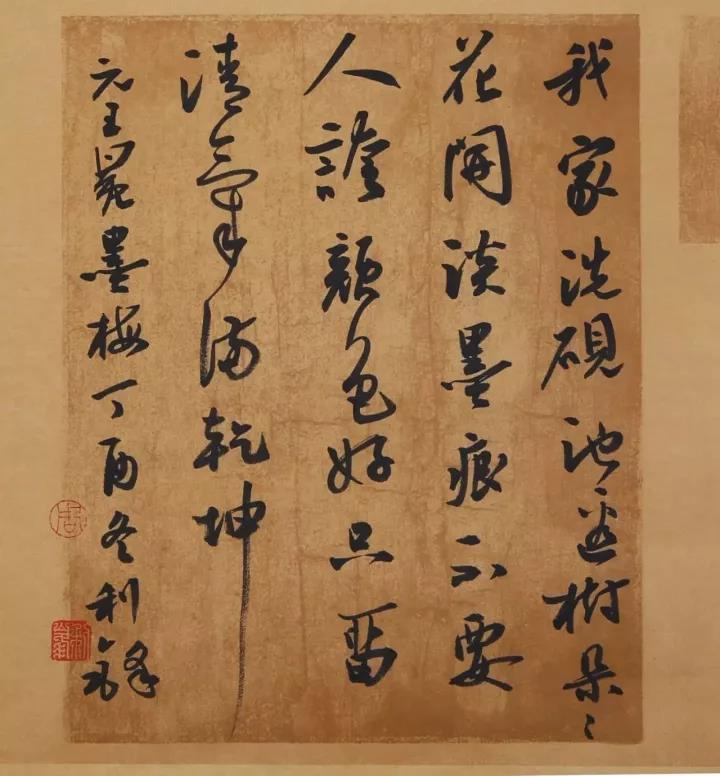 我家洗砚池边树朵〻
花開淡墨痕不要
人誇顏色好只留
清氣滿乾坤
元王冕墨梅丁酉冬利鋒